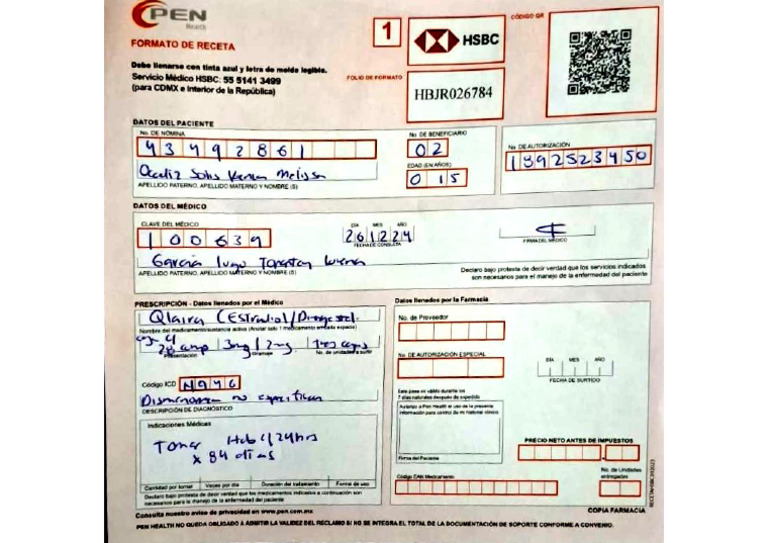 PEN
Health
CÓDIGO QR
FORMATO DE RECETA
1
HSBC
Debe llenarse con tinta azul y letra de molde legible.
Servicio Médico HSBC: 55 5141 3499
(para CDMX e Interior de la República)
FOLIO DE FORMATO
HBJR026784
DATOS DEL PACIENTE
No. DE NÓMINA
43492861
No. DE BENEFICIARIO
02
No. DE AUTORIZACIÓN
1892523450
EDAD (EN AÑOS)
015
Solis Karen Melissa
APELLIDO PATERNO, APELLIDO MATERNO Y NOMBRE (S)
DATOS DEL MÉDICO
CLAVE DEL MÉDICO
100639
DÍA MES AÑO
261224
FECHA DE CONSULTA
FIRMA DEL MÉDICO
García Lugo
APELLIDO PATERNO, APELLIDO MATERNO Y NOMBRE (S)
Declaro bajo protesta de decir verdad que los servicios indicados
son necesarios para el manejo de la enfermedad del paciente
PRESCRIPCIÓN - Datos llenados por el Médico
Qlaira (Estradiol/
Nombre del medicamento/sustancia activa (Anotar solo 1 medicamento en cada espacio)
28 3mg/2mg
Presentación Gramaje No. de unidades a surtir
Código ICD N946
Dismenorrea no
DESCRIPCIÓN DE DIAGNÓSTICO
Indicaciones Médicas
Tomar 1/24hrs
x 84 días
Cantidad por tomar Veces por día Duración del tratamiento Forma de uso
Declaro bajo protesta de decir verdad que los medicamentos indicados a continuación son
necesarios para el manejo de la enfermedad del paciente
Datos llenados por la Farmacia
No. de Proveedor
No. DE AUTORIZACIÓN ESPECIAL
DÍA MES AÑO
FECHA DE SURTIDO
Este pase es válido durante los
7 días naturales después de expedido
Autorizo a Pen Health el uso de la presente
información para control de mi historial clínico
Firma del Paciente
PRECIO NETO ANTES DE IMPUESTOS
Código EAN Medicamento
No. de Unidades
entregadas
COPIA FARMACIA
Consulta nuestro aviso de privacidad en www.pen.com.mx
PEN HEALTH NO QUEDA OBLIGADO A ADMITIR LA VALIDEZ DEL RECLAMO SI NO SE INTEGRA EL TOTAL DE LA DOCUMENTACIÓN DE SOPORTE CONFORME A CONVENIO.